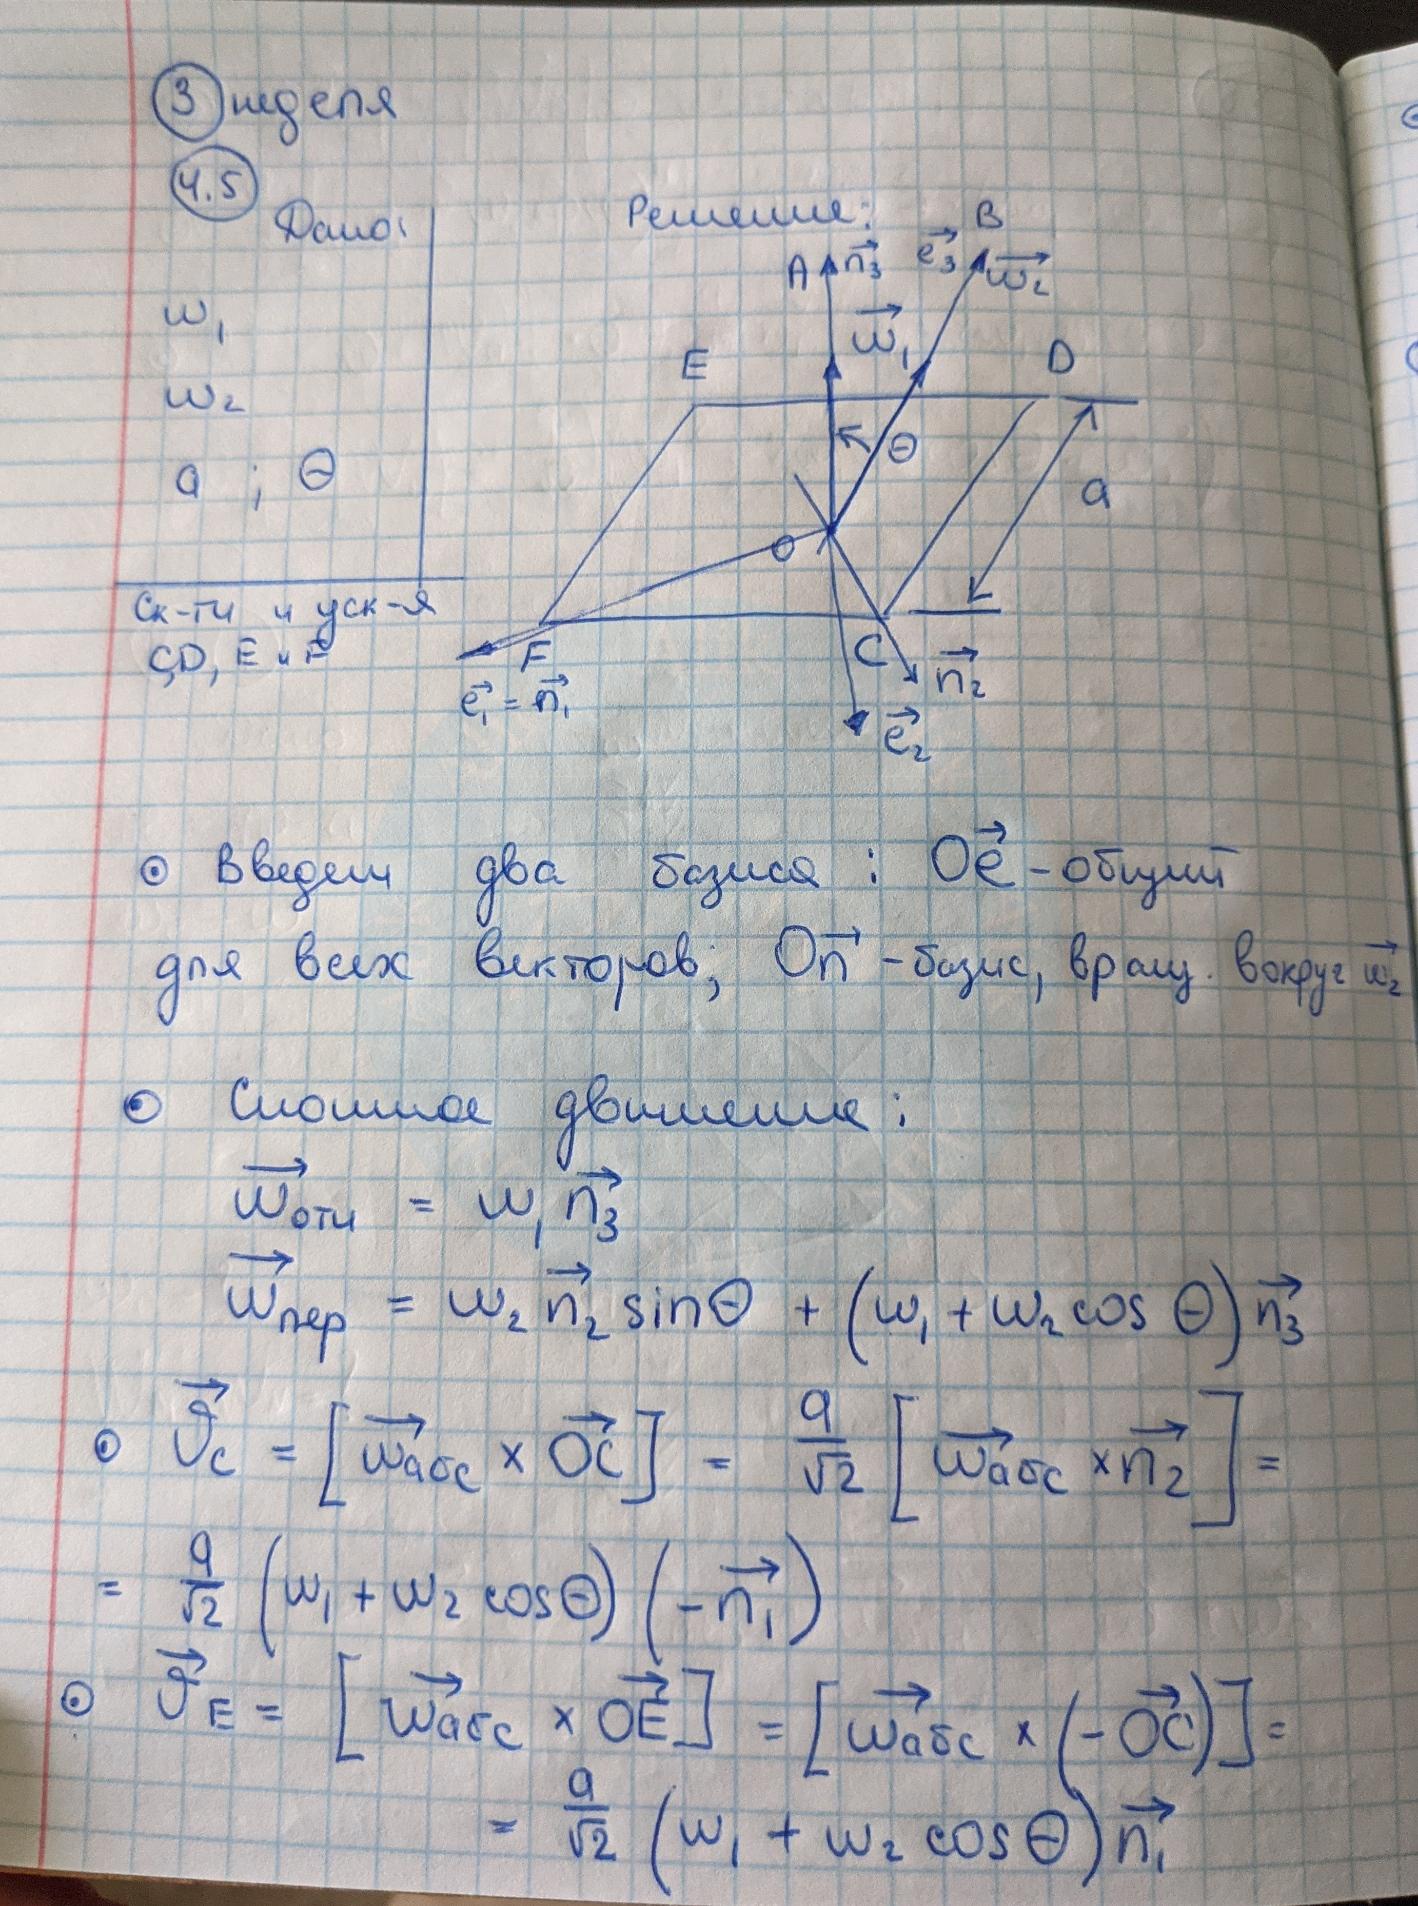 3 неделя
4.5
Дано:
Решение:
ω₁
ω₂
a ; Θ
Ск-ти и уск-я
C,D, E и F
A n⃗₃ e⃗₃ B ω⃗₂
ω⃗₁
E D
Θ
a
O
F C n⃗₂
e⃗₁ = n⃗₁
e⃗₂
⊙ Введем два базиса : Oe⃗ - общий
для всех векторов; On⃗ - базис, вращ. вокруг ω⃗₂
⊙ Сложное движение:
ω⃗отн = ω₁ n⃗₃
ω⃗пер = ω₂ n⃗₂ sinΘ + (ω₁ + ω₂ cos Θ) n⃗₃
⊙ V⃗c = [ω⃗абс × OC⃗] = a/√2 [ω⃗абс × n⃗₂] =
= a/√2 (ω₁ + ω₂ cosΘ) (-n⃗₁)
⊙ V⃗E = [ω⃗абс × OE⃗] = [ω⃗абс × (-OC⃗)] =
= a/√2 (ω₁ + ω₂ cosΘ) n⃗₁